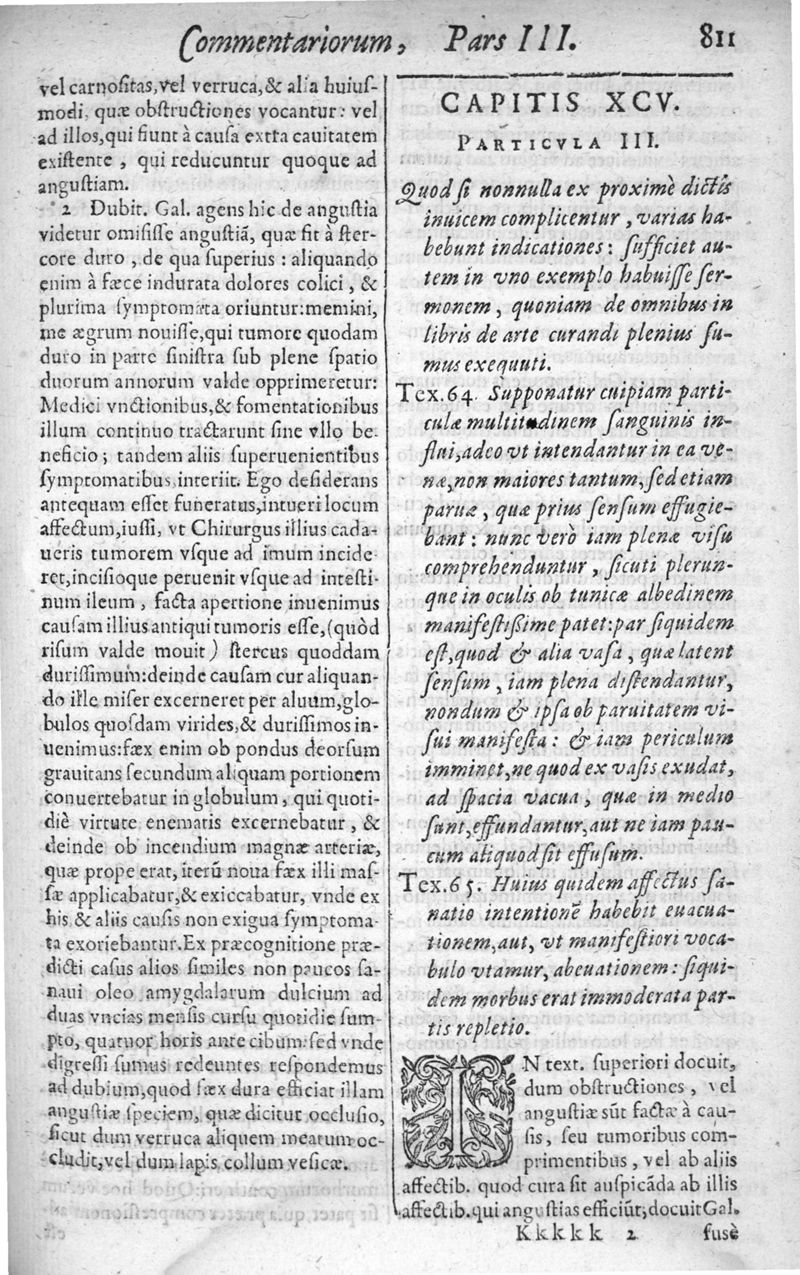 Commentariorum, Pars III. 811
vel carnositas, vel verruca, & alia huius-
modi, quæ obstructiones vocantur: vel
ad illos, qui fiunt à causa extra cauitatem
existente, qui reducuntur quoque ad
angustiam.
2 Dubit. Gal. agens hic de angustia
videtur omisisse angustiã, quæ fit à ster-
core duro, de qua superius: aliquando
enim à fæce indurata dolores colici, &
plurima symptomata oriuntur: memini,
me ægrum nouisse, qui tumore quodam
duro in parte sinistra sub plene spatio
duorum annorum valde opprimeretur:
Medici vnctionibus, & fomentationibus
illum continuo tractarunt sine vllo be-
neficio; tandem aliis superuenientibus
symptomatibus interiit. Ego desiderans
antequam esset funeratus, intueri locum
affectum, iussi, vt Chirurgus illius cada-
ueris tumorem vsque ad imum incide-
ret, incisioque peruenit vsque ad intesti-
num ileum, facta apertione inuenimus
causam illius antiqui tumoris esse, (quòd
risum valde mouit) stercus quoddam
durissimum: deinde causam cur aliquan-
do ille miser excerneret per aluum, glo-
bulos quosdam virides, & durissimos in-
uenimus: fæx enim ob pondus deorsum
grauitans secundum aliquam portionem
conuertebatur in globulum, qui quoti-
diè virtute enematis excernebatur, &
deinde ob incendium magnæ arteriæ,
quæ prope erat, iterũ noua fæx illi mas-
sæ applicabatur, & exiccabatur, vnde ex
his & aliis causis non exigua symptoma-
ta exoriebantur. Ex præcognitione præ-
dicti casus alios similes non paucos sa-
naui oleo amygdalarum dulcium ad
duas vncias mensis cursu quotidie sum-
pto, quatuor horis ante cibum: sed vnde
digressi sumus redeuntes respondemus
ad dubium, quod fæx dura efficiat illam
angustiæ speciem, quæ dicitur occlusio,
sicut dum verruca aliquem meatum oc-
cludit, vel dum lapis collum vesicæ.
CAPITIS XCV.
PARTICVLA III.
Quod si nonnulla ex proximè dictis
inuicem complicentur, varias ha-
bebunt indicationes: sufficiet au-
tem in vno exemplo habuisse ser-
monem, quoniam de omnibus in
libris de arte curandi plenius su-
mus exequuti.
Tex. 64. Supponatur cuipiam parti-
culæ multitudinem sanguinis in-
flui, adeo vt intendantur in ea ve-
næ, non maiores tantum, sed etiam
paruæ, quæ prius sensum effugie-
bant: nunc verò iam plenæ visu
comprehenduntur, sicuti plerun-
que in oculis ob tunicæ albedinem
manifestissime patet: par siquidem
est, quod & alia vasa, quæ latent
sensum, iam plena distendantur,
nondum & ipsa ob paruitatem vi-
sui manifesta: & iam periculum
imminet, ne quod ex vasis exudat,
ad spacia vacua, quæ in medio
sunt, effundantur, aut ne iam pau-
cum aliquod sit effusum.
Tex. 65. Huius quidem affectus sa-
natio intentionẽ habebit euacua-
tionem, aut, vt manifestiori voca-
bulo vtamur, abeuationem: siqui-
dem morbus erat immoderata par-
tis repletio.
IN text. superiori docuit,
dum obstructiones, vel
angustiæ sũt factæ à cau-
sis, seu tumoribus com-
primentibus, vel ab aliis
affectib. quod cura sit auspicãda ab illis
affectib. qui angustias efficiũt; docuit Gal.
Kkkkk 2 fusè